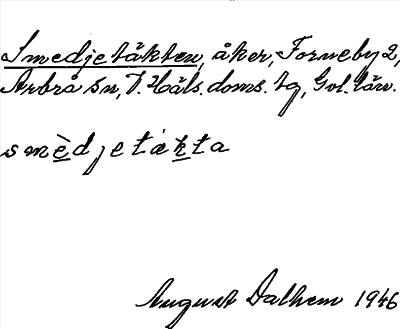 Smedjetäkten, åker, Forneby 2,
Arbrå sn, V. Häls. doms. tg, Gvl. län.
smèdjetäkta
August Dalhem 1946